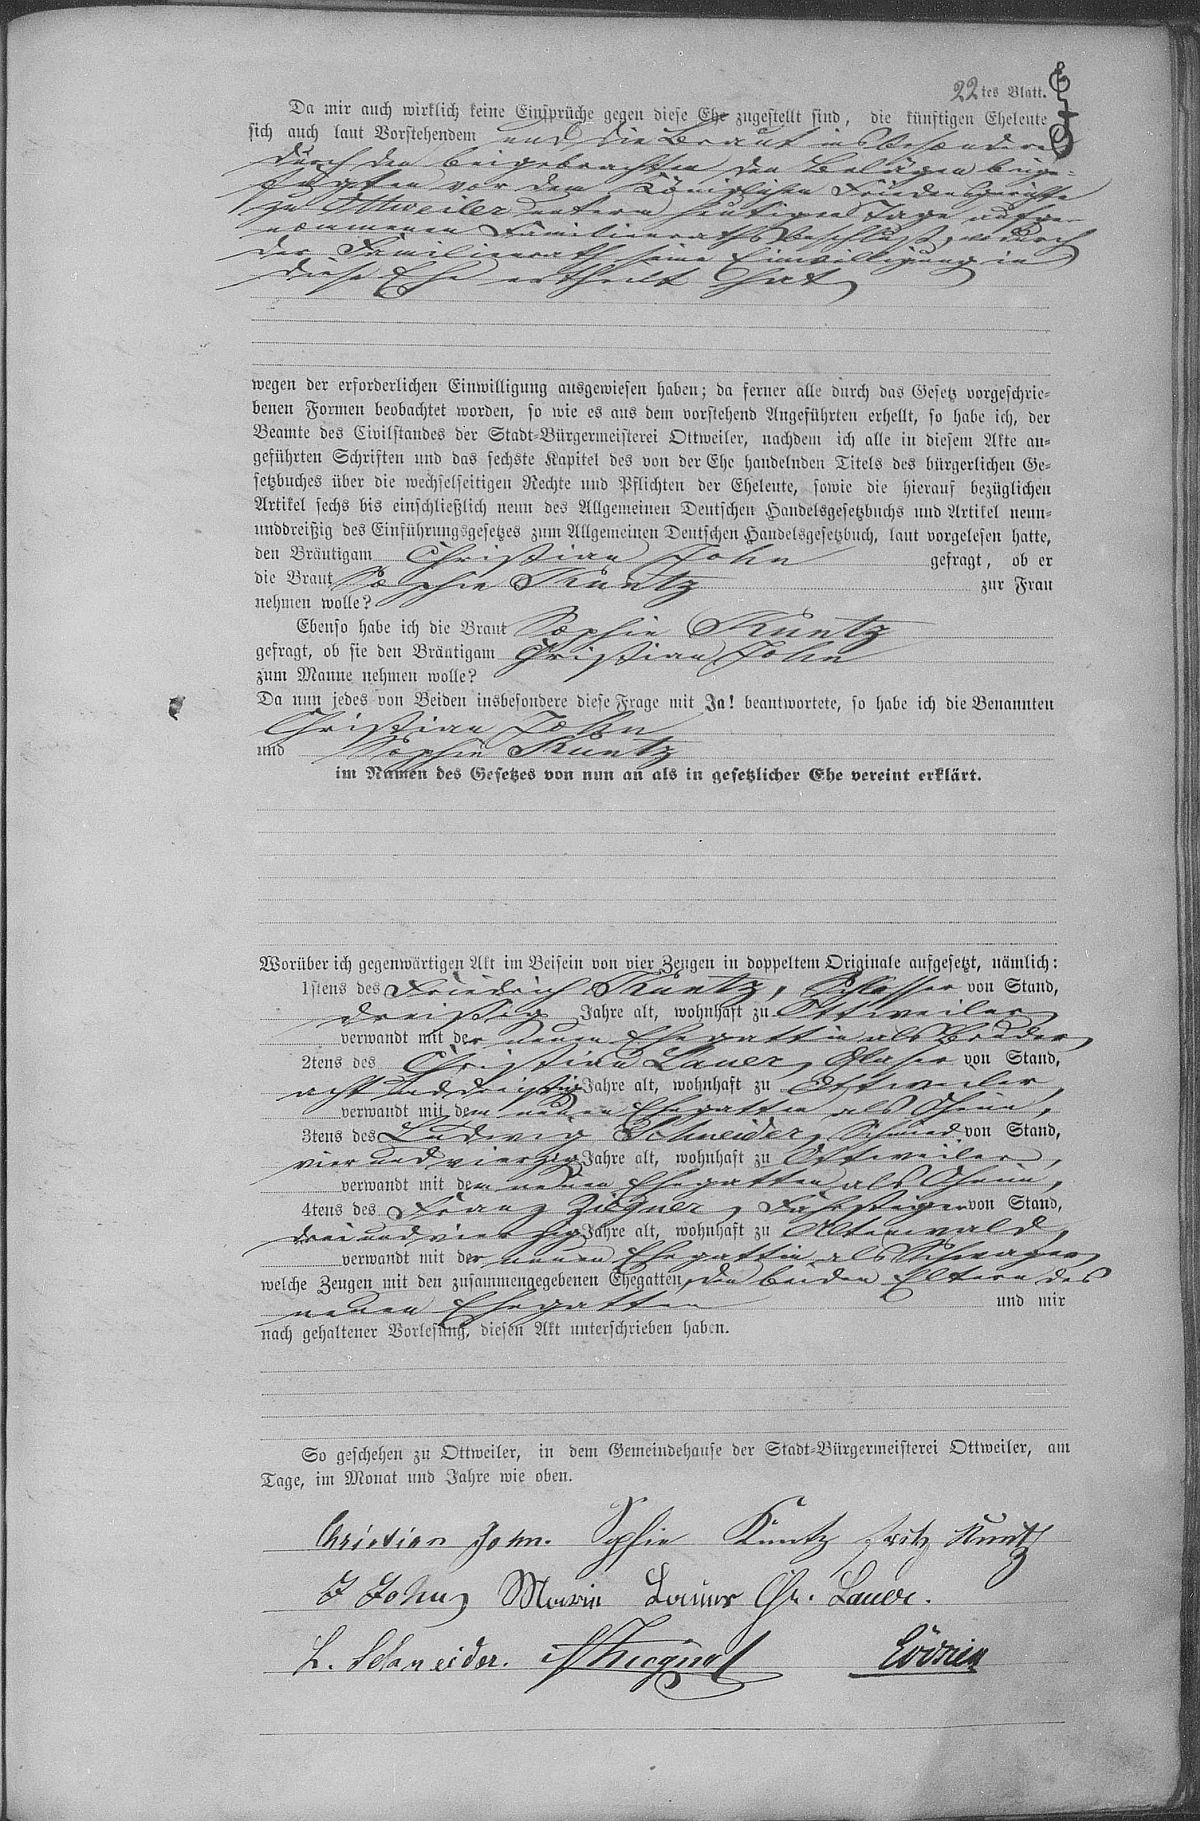 22tes Blatt.
Da mir auch wirklich keine Einsprüche gegen diese Ehe zugestellt sind, die künftigen Eheleute
sich auch laut Vorstehendem und die Braut insbesondere
durch den beigebrachten den Belägen beige-
fügten vor dem Königlichen Friedensgerichte
zu Ottweiler unterm heutigen Tage aufge-
nommenen Familienrathsbeschluß, wodurch
der Familienrath seine Einwilligung in
diese Ehe ertheilt hat,
wegen der erforderlichen Einwilligung ausgewiesen haben; da ferner alle durch das Gesetz vorgeschrie-
benen Formen beobachtet worden, so wie es aus dem vorstehend Angeführten erhellt, so habe ich, der
Beamte des Civilstandes der Stadt-Bürgermeisterei Ottweiler, nachdem ich alle in diesem Akte an-
geführten Schriften und das sechste Kapitel des von der Ehe handelnden Titels des bürgerlichen Ge-
setzbuches über die wechselseitigen Rechte und Pflichten der Eheleute, sowie die hierauf bezüglichen
Artikel sechs bis einschließlich neun des Allgemeinen Deutschen Handelsgesetzbuchs und Artikel neun-
unddreißig des Einführungsgesetzes zum Allgemeinen Deutschen Handelsgesetzbuch, laut vorgelesen hatte,
den Bräutigam Christian John gefragt, ob er
die Braut Sophie Kuntz zur Frau
nehmen wolle?
Ebenso habe ich die Braut Sophie Kuntz
gefragt, ob sie den Bräutigam Christian John
zum Manne nehmen wolle?
Da nun jedes von Beiden insbesondere diese Frage mit Ja! beantwortete, so habe ich die Benannten
Christian John
und Sophie Kuntz
im Namen des Gesetzes von nun an als in gesetzlicher Ehe vereint erklärt.
Worüber ich gegenwärtigen Akt im Beisein von vier Zeugen in doppeltem Originale aufgesetzt, nämlich:
1stens des Friedrich Kuntz, Schlosser von Stand,
dreißig Jahre alt, wohnhaft zu Ottweiler,
verwandt mit der neuen Ehegattin als Bruder,
2tens des Christian Lauer, Glaser von Stand,
acht und dreißig Jahre alt, wohnhaft zu Ottweiler,
verwandt mit dem neuen Ehegatten als Oheim,
3tens des Ludwig Schneider, Schmied von Stand,
vier und vierzig Jahre alt, wohnhaft zu Ottweiler,
verwandt mit dem neuen Ehegatten als Oheim,
4tens des Franz Fahrsteiger von Stand,
drei und vierzig Jahre alt, wohnhaft zu Altenwald,
verwandt mit der neuen Ehegattin als Schwager,
welche Zeugen mit den zusammengegebenen Ehegatten, den beiden Eltern des
neuen Ehegatten und mir
nach gehaltener Vorlesung, diesen Akt unterschrieben haben.
So geschehen zu Ottweiler, in dem Gemeindehause der Stadt-Bürgermeisterei Ottweiler, am
Tage, im Monat und Jahre wie oben.
Christian John. Sophie Kuntz Fritz Kuntz
F John Marie Lauer Chr. Lauer.
L. Schneider.